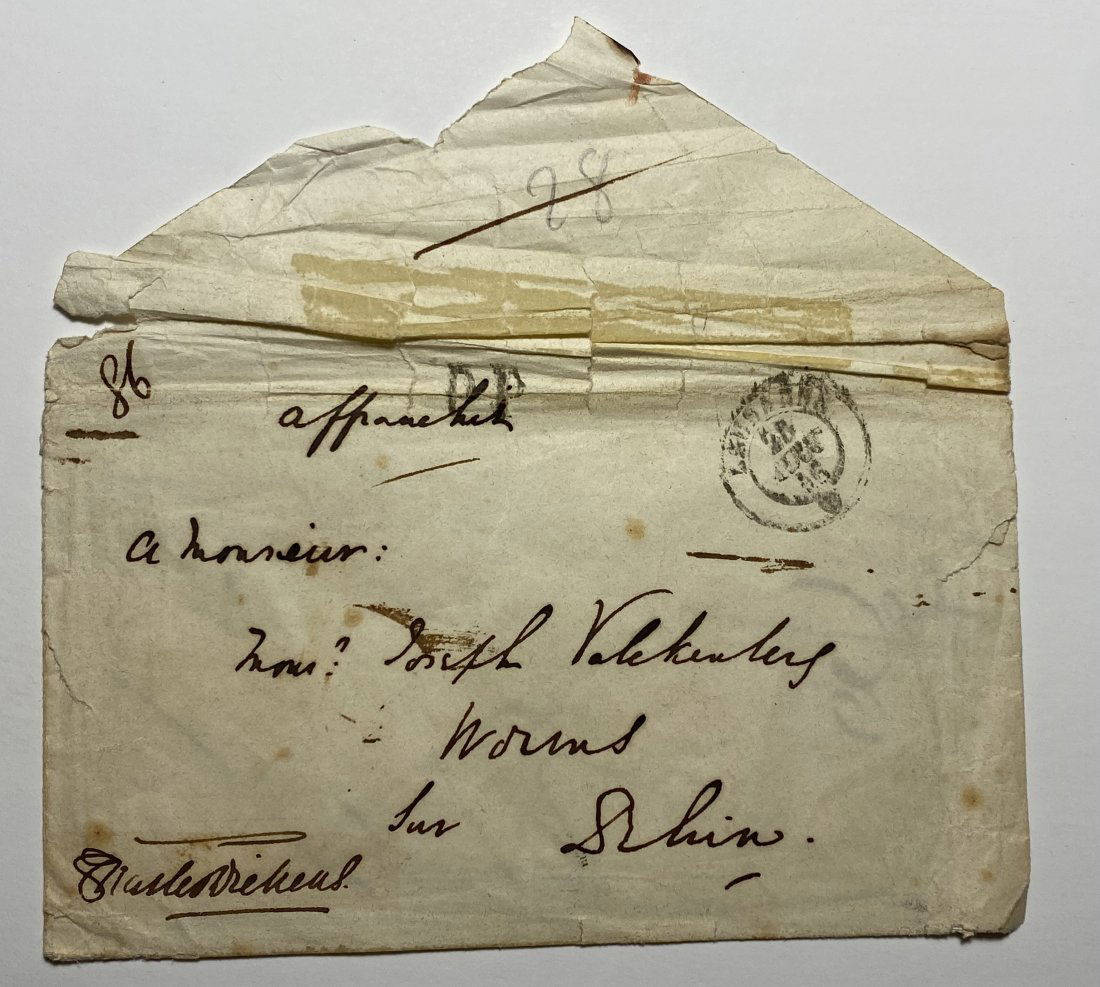 28
86
P.P.
affranchie
LAUSANNE
28
46
a Monsieur:
Monsr. Joseph Valckenberg
Worms
Sur Rhin.
Charles Dickens.